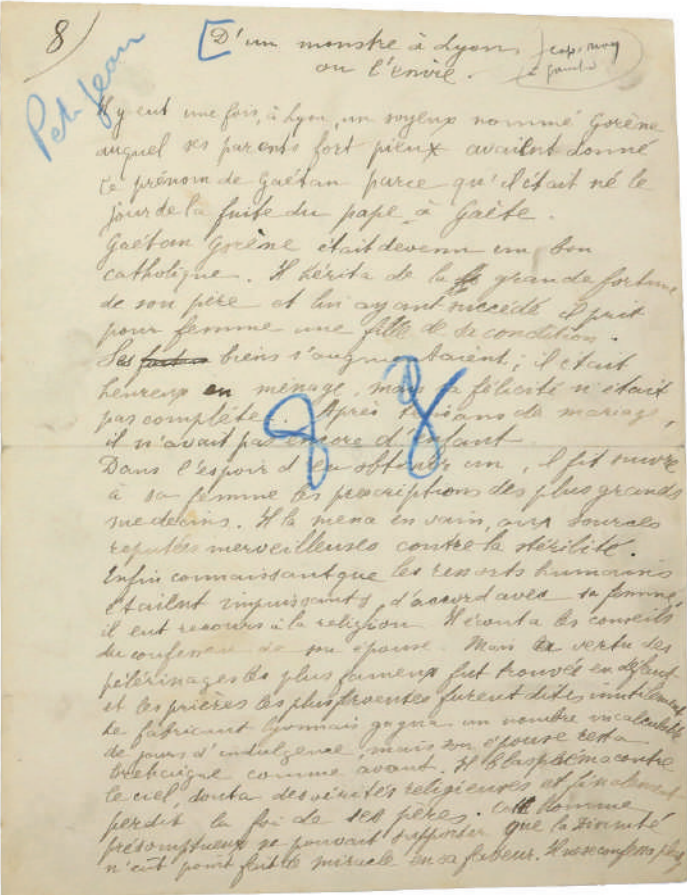 8)
[D'un monstre à Lyon,
ou l'envie.
Petit Jean
Il y eut une fois, à Lyon, un soyeux nommé Gorène
auquel ses parents fort pieux avaient donné
le prénom de Gaétan parce qu'il était né le
jour de la fuite du pape à Gaète.
Gaétan Gorène était devenu un bon
catholique. Il hérita de la grande fortune
de son père et lui ayant succédé il prit
pour femme une fille de sa condition.
Ses biens s'augmentaient; il était
heureux en ménage, mais sa félicité n'était
pas complète. Après trois ans de mariage,
il n'avait pas encore d'enfant.
8 8
Dans l'espoir d'en obtenir un, il fit suivre
à sa femme les prescriptions des plus grands
medecins. Il la mena en vain, aux sources
reputées merveilleuses contre la stérilité.
Enfin connaissant que les ressorts humains
étaient impuissants, d'accord avec sa femme,
il eut recours à la religion. Il écouta les conseils
du confesseur de son épouse. Mais la vertu des
pélérinages les plus fameux fut trouvée en défaut
et les prières les plus ferventes furent dites inutilement
Le fabricant lyonnais gagna un nombre incalculable
de jours d'indulgence, mais son épouse resta
brehaigne comme avant. Il blasphéma contre
le ciel, douta des vérités religieuses et finalement
perdit la foi de ses pères. Cet homme
présomptueux ne pouvait supporter que la Divinité
n'eût point fait de miracle en sa faveur. Il ne se confessa plus,